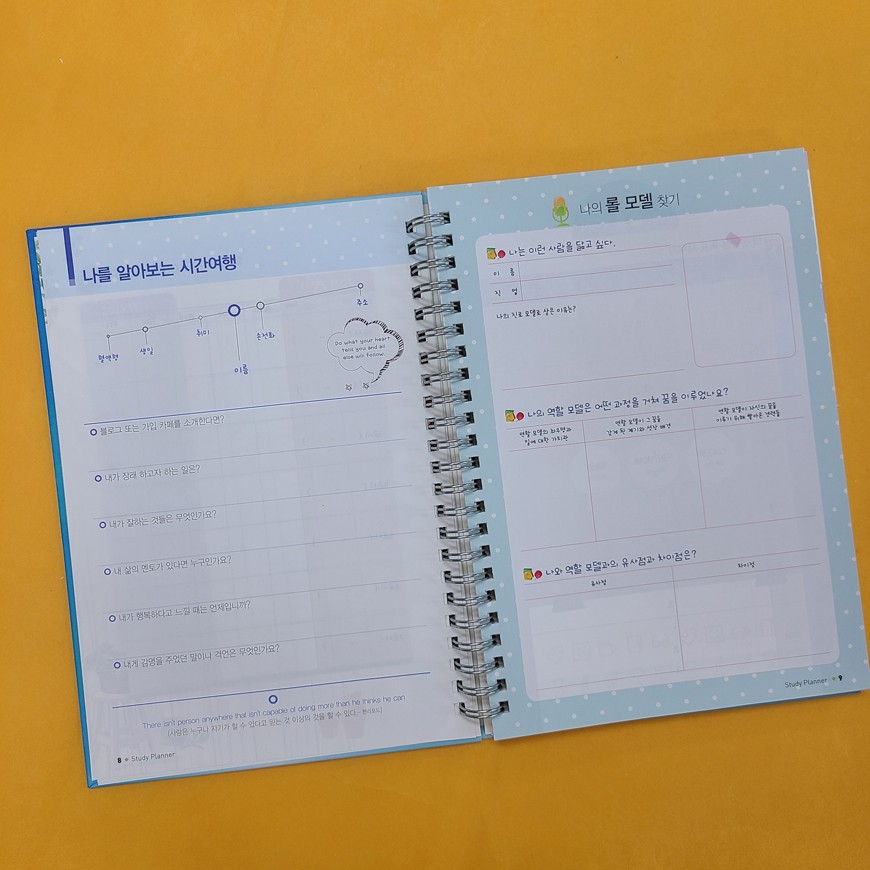 나를 알아보는 시간여행
혈액형
생일
취미
이름
손전화
주소
Do what your heart
tells you and all
else will follow.
블로그 또는 가입 카페를 소개한다면?
내가 장래 하고자 하는 일은?
내가 잘하는 것들은 무엇인가요?
내 삶의 멘토가 있다면 누구인가요?
내가 행복하다고 느낄 때는 언제입니까?
내게 감명을 주었던 말이나 격언은 무엇인가요?
There isn't person anywhere that isn't capable of doing more than he thinks he can
(사람은 누구나 자기가 할 수 있다고 믿는 것 이상의 것을 할 수 있다. - 헨리포드)
8 Study Planner
나의 롤 모델 찾기
나는 이런 사람을 닮고 싶다.
이 름
직 업
나의 진로 모델로 삼은 이유는?
나의 역할 모델은 어떤 과정을 거쳐 꿈을 이루었나요?
역할 모델의 좌우명과
일에 대한 가치관
역할 모델이 그 꿈을
갖게 된 계기와 성장 배경
역할 모델이 자신의 꿈을
이루기 위해 밟아온 경력들
나와 역할 모델과의 유사점과 차이점은?
유사점
차이점
Study Planner 9